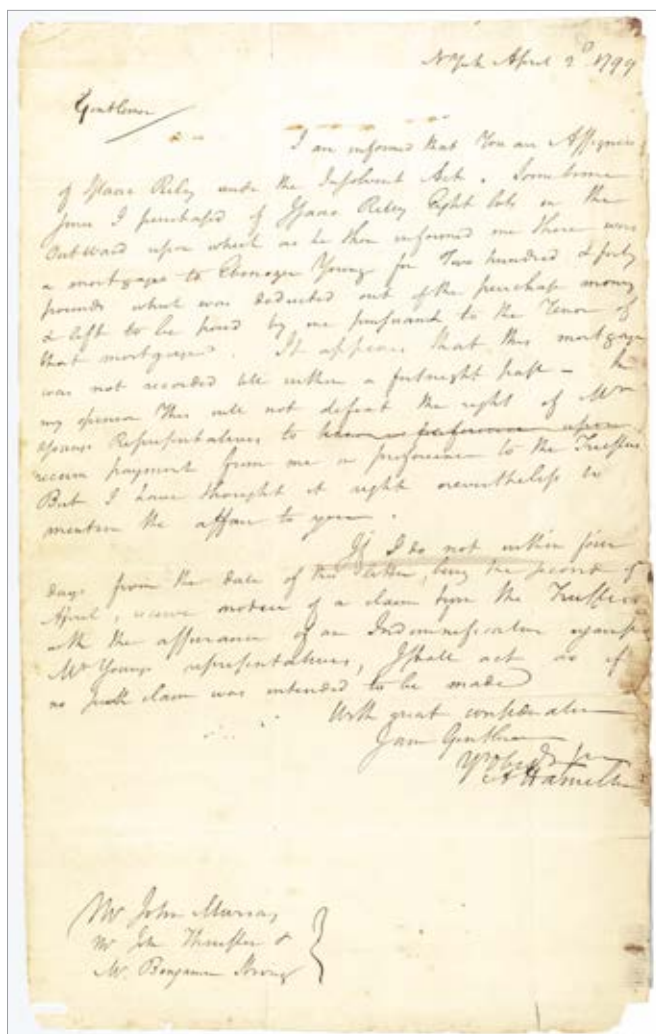 NYork April 2d. 1799
Gentlemen
I am informed that You are Assignees
of Isaac Riley under the Insolvent Act. Sometime
since I purchased of Isaac Riley Eight lots in the
Outward upon which as he then informed me there was
a mortgage to Ebenezer Young for Two hundred & forty
pounds which was deducted out of the purchase money
& left to be paid by me pursuant to the Tenor of
that mortgage. It appears that this mortgage
was not recorded till within a fortnight past - In
my opinion This will not defeat the right of Mr
Youngs Representatives to have a preference upon
receive payment from me in preference to the Trustees
But I have thought it right nevertheless to
mention the affair to you.
If I do not within four
days from the date of this letter, being the second of
April, receive notice of a claim from the Trustees
with the assurance of an Indemnification against
Mr Youngs representatives, I shall act as if
no such claim was intended to be made
With great consideration
I am Gentlemen
Yr Obed ser
A Hamilton
Mr John Murray
Mr John &
Mr. Benjamin Strong